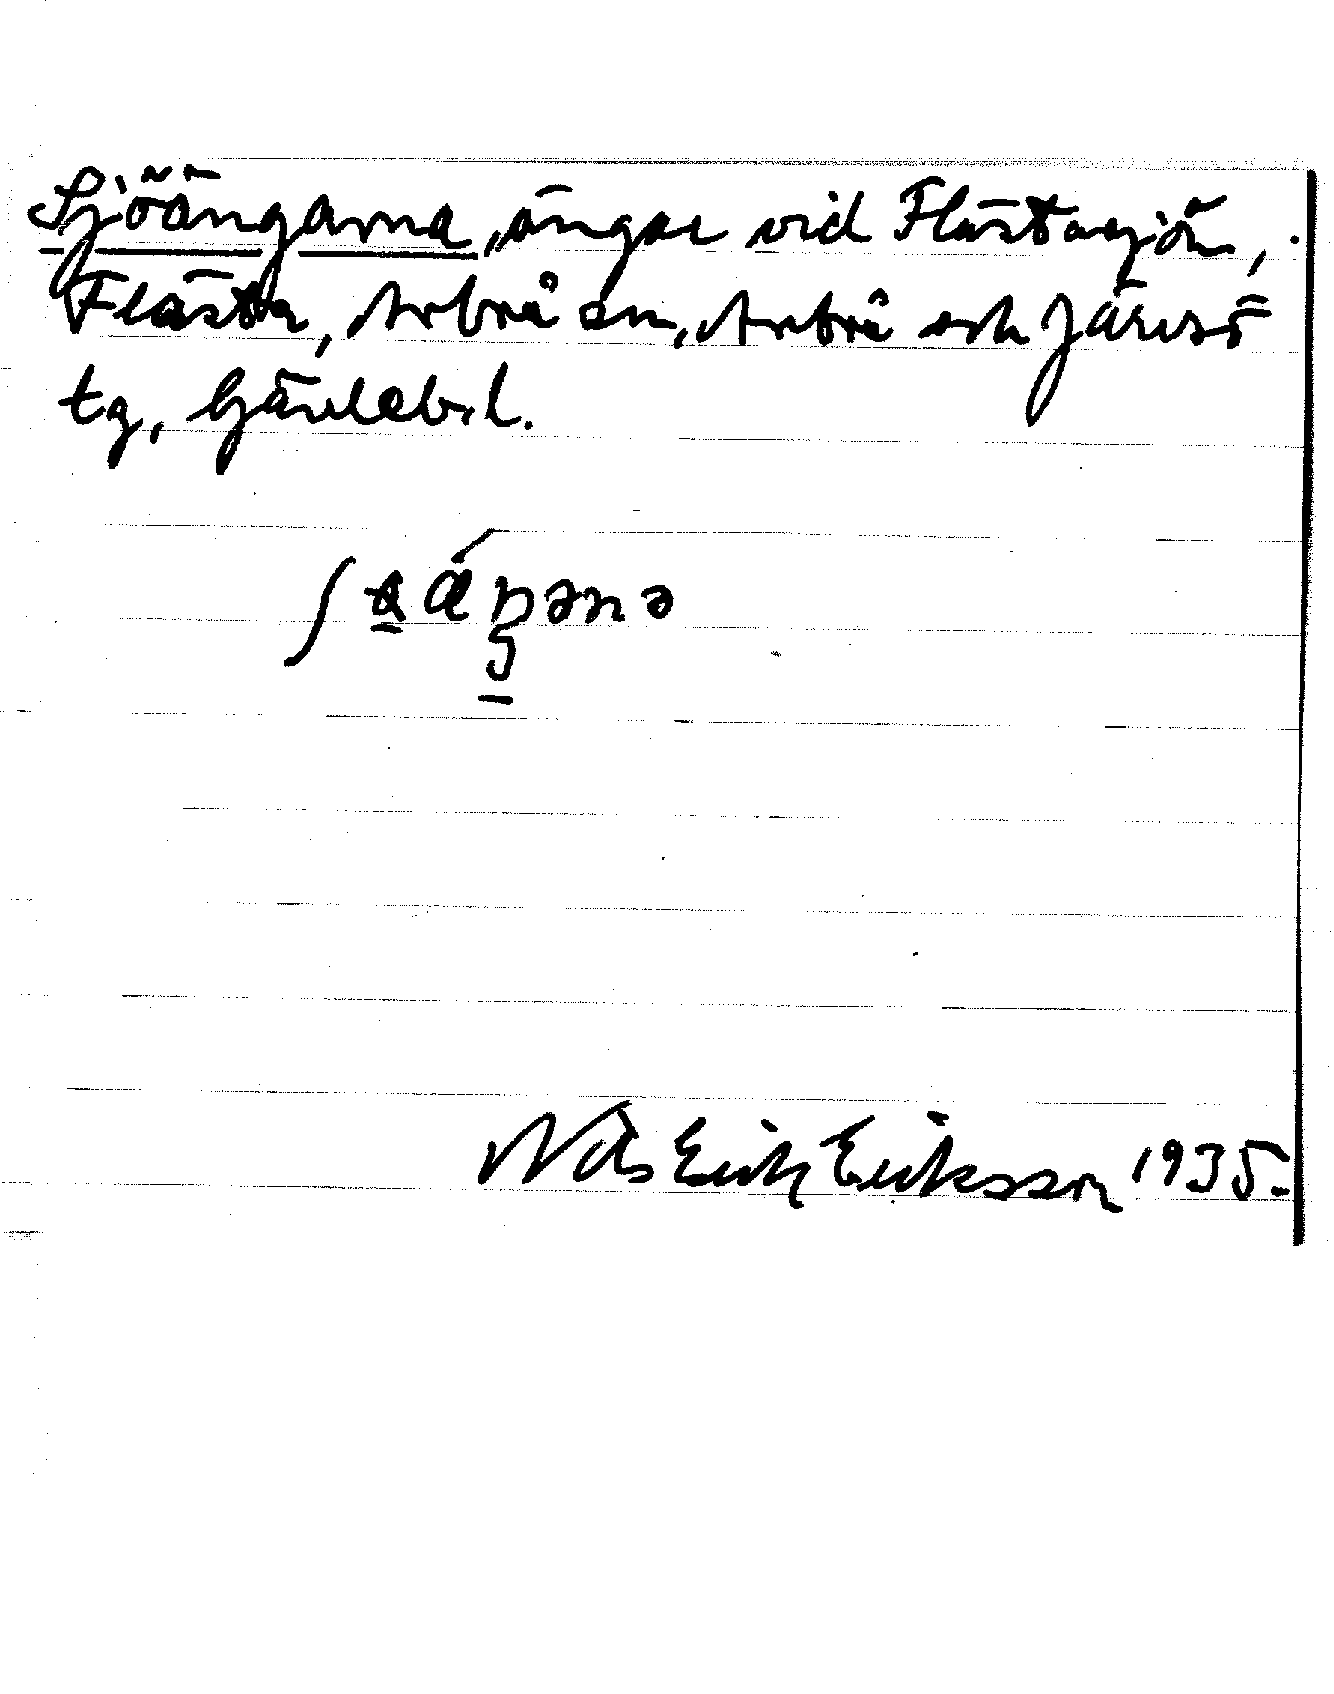 Sjöängarna, ängar vid Flästasjön,
Flästa, Arbrå sn, Arbrå och Järvsö
tg, Gävlebsl.
Nils Erik Eriksson 1935.